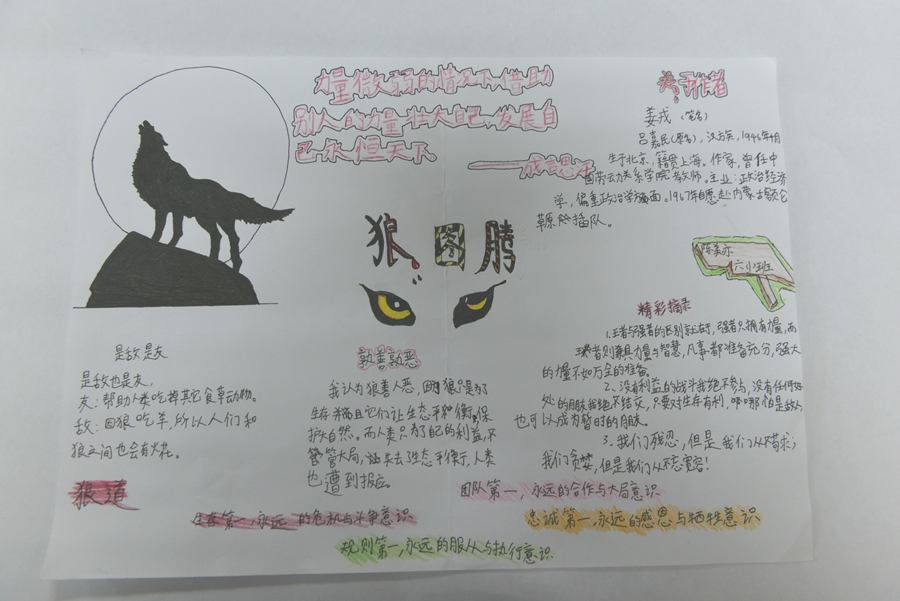 力量微弱的情况下,借助
别人的力量壮大自己,发展自
己,永恒天下
——成吉思汗
关于作者
姜戎 (笔名)
吕嘉民(原名),汉族,1946年4月
生于北京,籍贯上海。作家,曾任中
国劳动关系学院教师。主业:政治经济
学,偏重政治学方面。1967年自愿赴内蒙古额仑
草原插队。
狼图腾
六(2)班
是敌是友
是敌也是友,
友:帮助人类吃掉其它食草动物。
敌:因狼吃羊,所以人们和
狼之间也会有火花。
孰善孰恶
我认为狼善人恶,因为狼只是为了
生存,而且它们让生态平衡,保
护大自然。而人类只为了自己的利益,不
管大局,失去生态平衡,人类
也遭到报应。
精彩摘录
1.王者与强者的区别就在于,强者只拥有力量,而
王者则兼具力量与智慧,凡事都准备充分,强大
的力量不如万全的准备。
2、没有利益的战斗我绝不参与,没有任何好
处的朋友我绝不结交,只要对生存有利,哪怕是敌人
也可以成为暂时的朋友。
3.我们残忍,但是我们从不苟求;
我们贪婪,但是我们从不忘宽容!
狼道
生存第一,永远的危机与斗争意识
团队第一,永远的合作与大局意识
忠诚第一,永远的感恩与牺牲意识
规则第一,永远的服从与执行意识